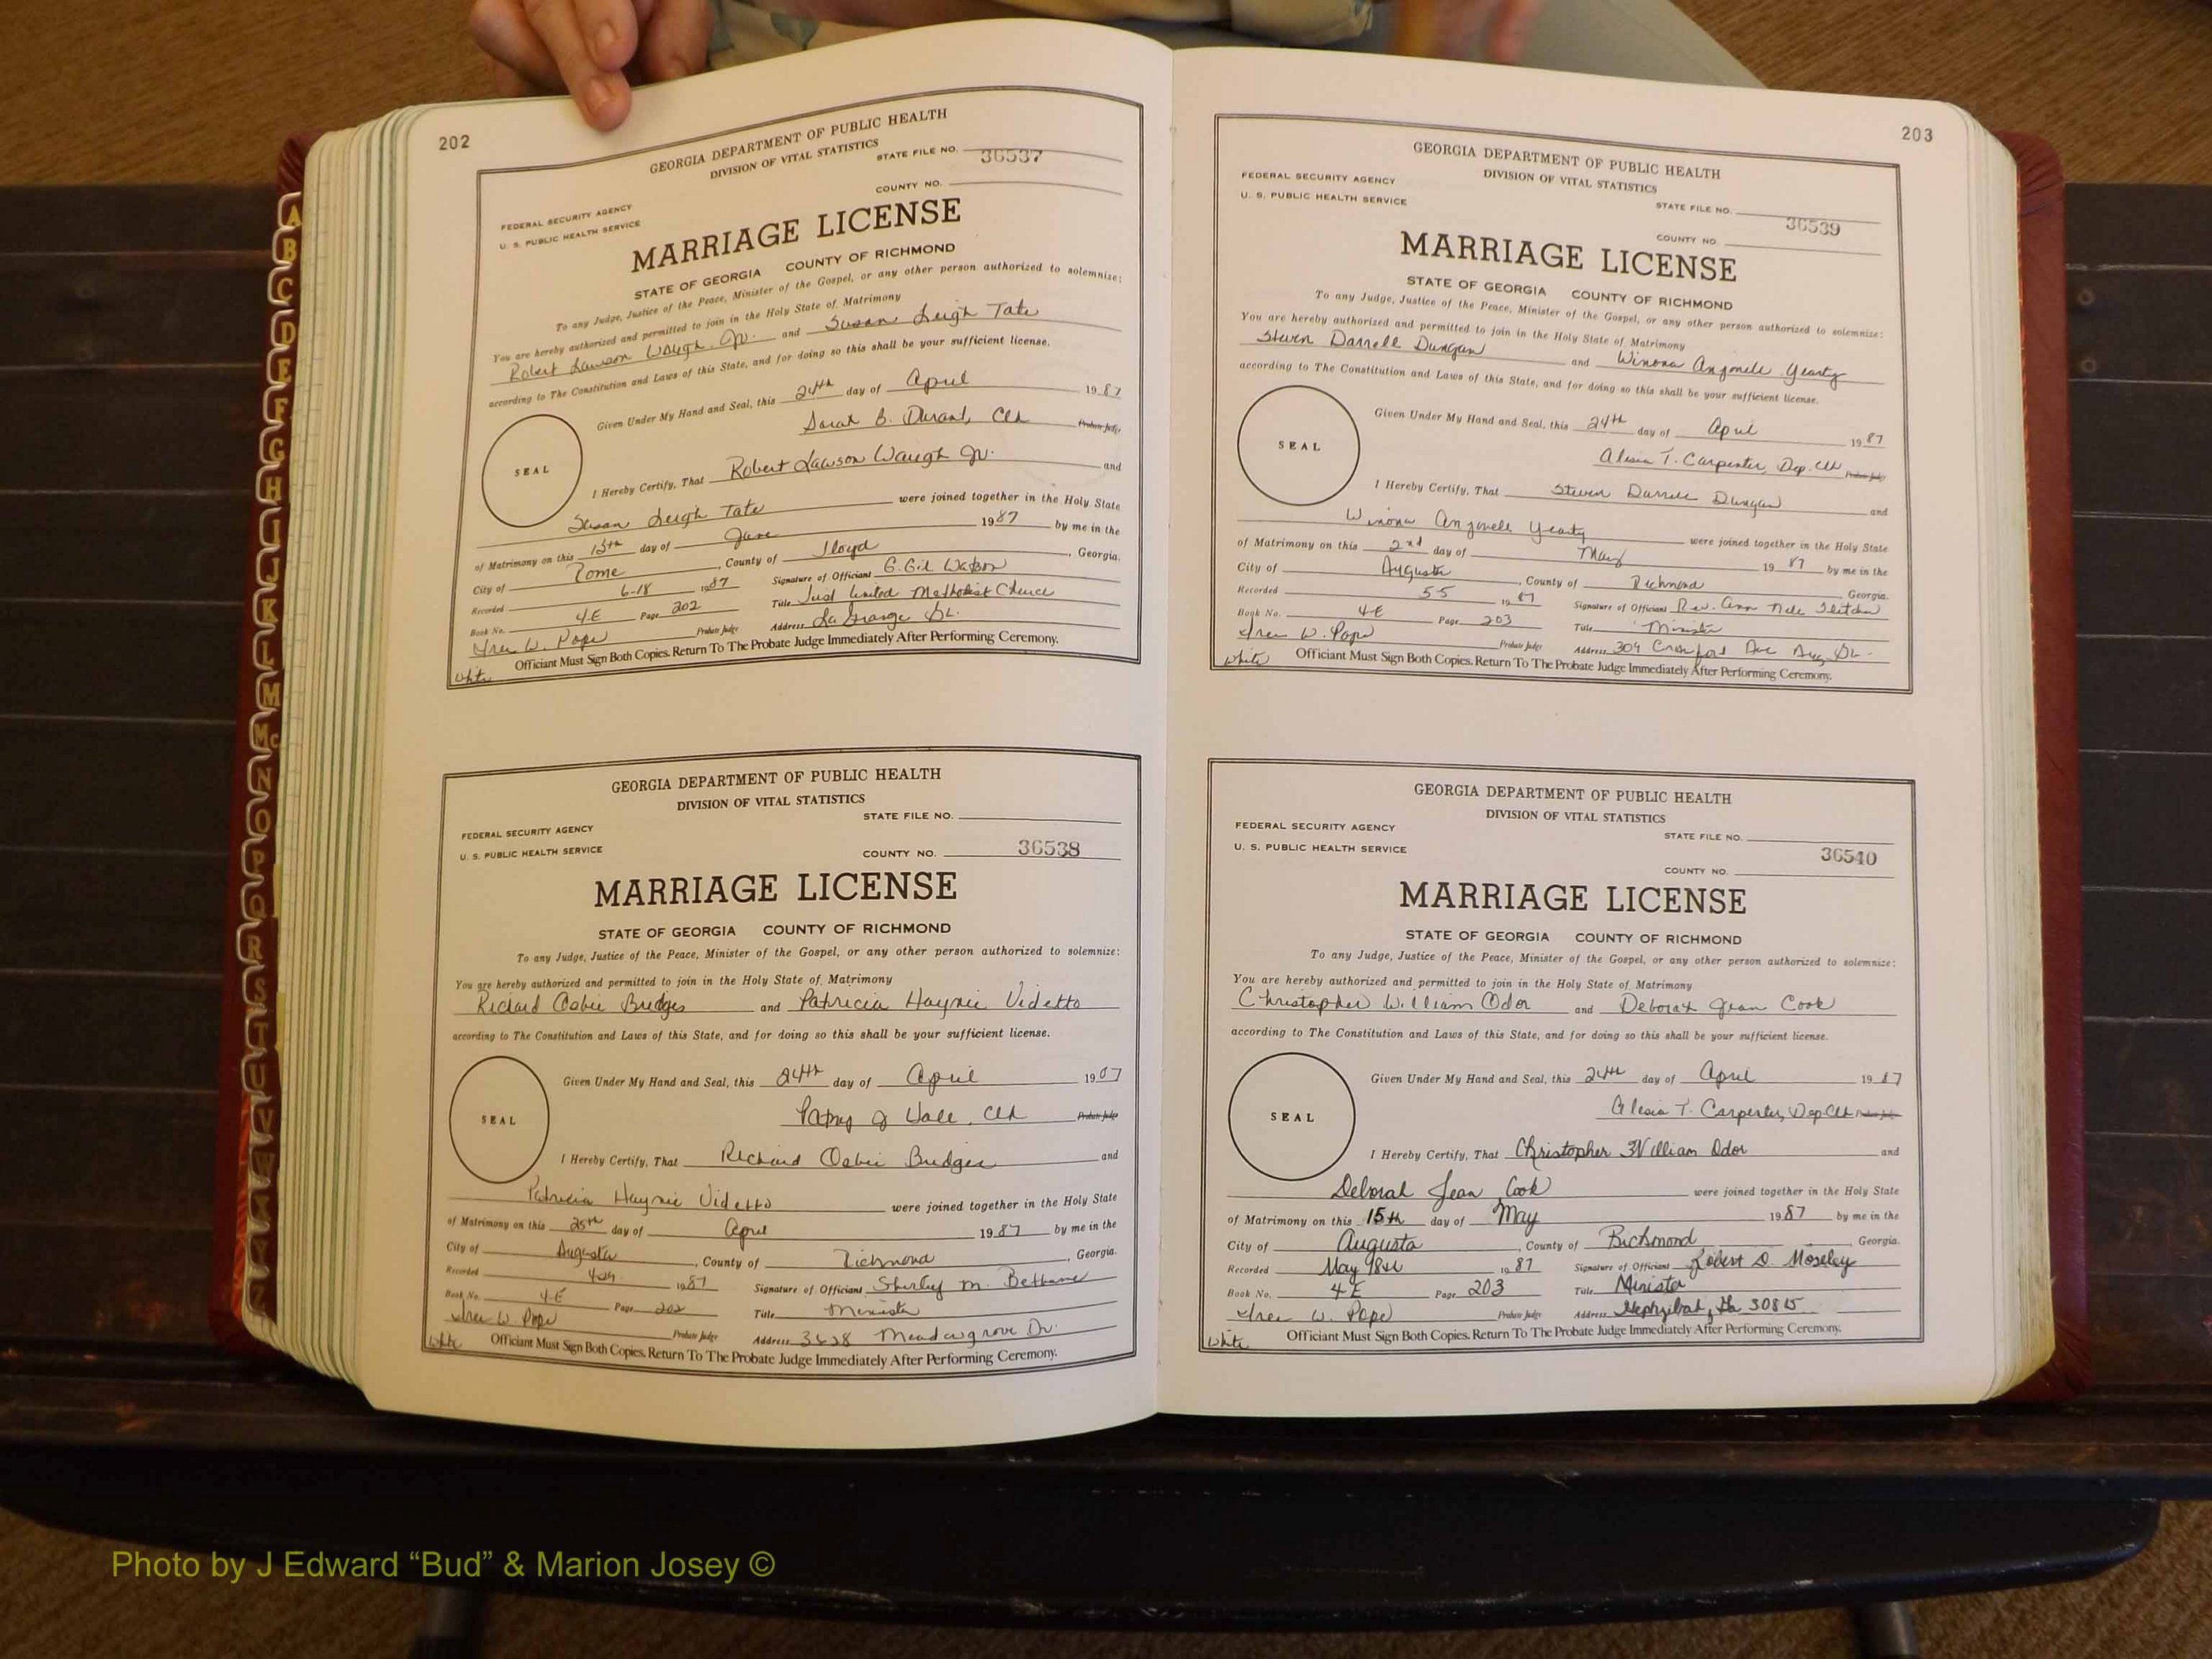 202
GEORGIA DEPARTMENT OF PUBLIC HEALTH
DIVISION OF VITAL STATISTICS
STATE FILE NO. 36537
COUNTY NO.
FEDERAL SECURITY AGENCY
U. S. PUBLIC HEALTH SERVICE
MARRIAGE LICENSE
STATE OF GEORGIA COUNTY OF RICHMOND
To any Judge, Justice of the Peace, Minister of the Gospel, or any other person authorized to solemnize:
You are hereby authorized and permitted to join in the Holy State of Matrimony
Robert Lawson Waugh Jr. and Susan Leigh Tate
according to The Constitution and Laws of this State, and for doing so this shall be your sufficient license.
Given Under My Hand and Seal, this 24th day of April 1987
Sarah B. Durant, Clk Probate Judge
SEAL
I Hereby Certify, That Robert Lawson Waugh Jr. and
Susan Leigh Tate were joined together in the Holy State
of Matrimony on this 13th day of June 1987 by me in the
City of Rome, County of Floyd, Georgia.
Recorded 6-18 1987 Signature of Officiant G. Gil Watson
Book No. 4E Page 202 Title United Methodist Church
W. Pope Probate Judge Address LaGrange Ga.
White Officiant Must Sign Both Copies. Return To The Probate Judge Immediately After Performing Ceremony.
GEORGIA DEPARTMENT OF PUBLIC HEALTH
DIVISION OF VITAL STATISTICS
STATE FILE NO.
FEDERAL SECURITY AGENCY
U. S. PUBLIC HEALTH SERVICE
COUNTY NO. 36538
MARRIAGE LICENSE
STATE OF GEORGIA COUNTY OF RICHMOND
To any Judge, Justice of the Peace, Minister of the Gospel, or any other person authorized to solemnize:
You are hereby authorized and permitted to join in the Holy State of Matrimony
Richard Osbie Bridges and Patricia Haynie Videtto
according to The Constitution and Laws of this State, and for doing so this shall be your sufficient license.
Given Under My Hand and Seal, this 24th day of April 1987
Patsy J Hall, Clk Probate Judge
SEAL
I Hereby Certify, That Richard Osbie Bridges and
Patricia Haynie Videtto were joined together in the Holy State
of Matrimony on this 25th day of April 1987 by me in the
City of Augusta, County of Richmond, Georgia.
Recorded 4-29 1987 Signature of Officiant Shirley M. Bethune
Book No. 4E Page 202 Title Minister
W. Pope Probate Judge Address 3628 Meadowgrove Dr.
White Officiant Must Sign Both Copies. Return To The Probate Judge Immediately After Performing Ceremony.
203
GEORGIA DEPARTMENT OF PUBLIC HEALTH
DIVISION OF VITAL STATISTICS
FEDERAL SECURITY AGENCY
U. S. PUBLIC HEALTH SERVICE
STATE FILE NO.
36539
COUNTY NO.
MARRIAGE LICENSE
STATE OF GEORGIA COUNTY OF RICHMOND
To any Judge, Justice of the Peace, Minister of the Gospel, or any other person authorized to solemnize:
You are hereby authorized and permitted to join in the Holy State of Matrimony
Steven Darrell Dungan and Winona Anjonele Yearty
according to The Constitution and Laws of this State, and for doing so this shall be your sufficient license.
Given Under My Hand and Seal, this 24th day of April 1987
Alesia T. Carpenter, Dep. Clk Probate Judge
SEAL
I Hereby Certify, That Steven Darrell Dungan and
Winona Anjonele Yearty were joined together in the Holy State
of Matrimony on this 2nd day of May 1987 by me in the
City of Augusta, County of Richmond Georgia.
Recorded 5-5 1987 Signature of Officiant Rev. Ann Nell Fletcher
Book No. 4E Page 203 Title Minister
W. Pope Probate Judge Address 309 Crawford Ave Aug, Ga.
White Officiant Must Sign Both Copies. Return To The Probate Judge Immediately After Performing Ceremony.
GEORGIA DEPARTMENT OF PUBLIC HEALTH
DIVISION OF VITAL STATISTICS
FEDERAL SECURITY AGENCY
STATE FILE NO.
U. S. PUBLIC HEALTH SERVICE
36540
COUNTY NO.
MARRIAGE LICENSE
STATE OF GEORGIA COUNTY OF RICHMOND
To any Judge, Justice of the Peace, Minister of the Gospel, or any other person authorized to solemnize:
You are hereby authorized and permitted to join in the Holy State of Matrimony
Christopher William Odor and Deborah Jean Cook
according to The Constitution and Laws of this State, and for doing so this shall be your sufficient license.
Given Under My Hand and Seal, this 24th day of April 1987
Alesia T. Carpenter, Dep. Clk Probate Judge
SEAL
I Hereby Certify, That Christopher William Odor and
Deborah Jean Cook were joined together in the Holy State
of Matrimony on this 15th day of May 1987 by me in the
City of Augusta, County of Richmond, Georgia.
Recorded May 18th 1987 Signature of Officiant Robert D. Moseley
Book No. 4E Page 203 Title Minister
W. Pope Probate Judge Address Hephzibah, Ga 30815
White Officiant Must Sign Both Copies. Return To The Probate Judge Immediately After Performing Ceremony.
A
B
C
D
E
F
G
H
I
J
K
L
M
Mc
N
O
P
Q
R
S
T
U
V
W
X
Y
Z
Photo by J Edward “Bud” & Marion Josey ©